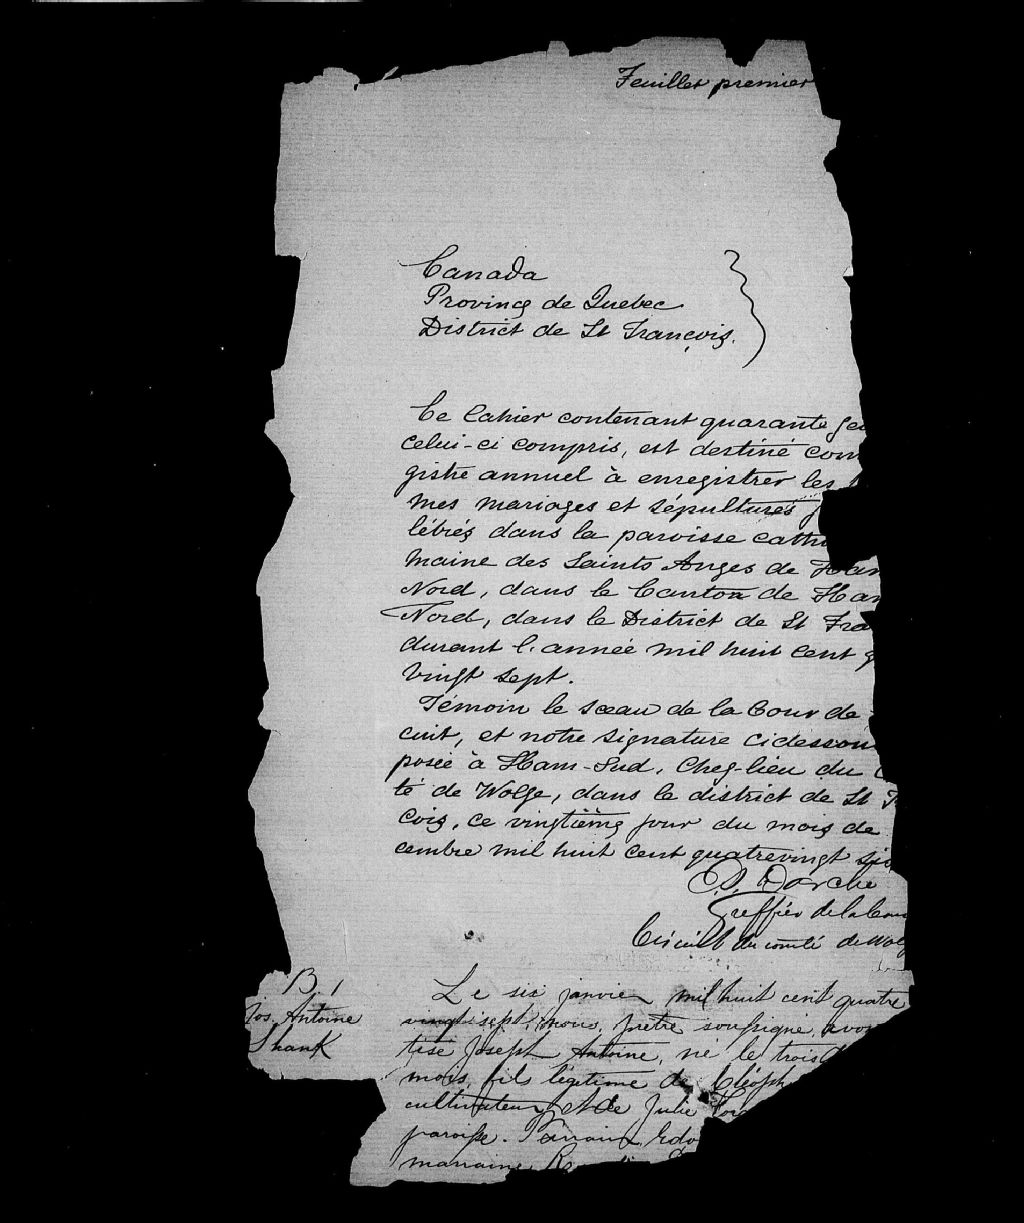 Feuillet premier
Canada
Province de Quebec
District de St François.
Ce Cahier contenant quarante feu
celui-ci compris, est destiné com
gistre annuel à enregistrer les
mes mariages et sépultures
lébrés dans la paroisse catho
maine des Saints Anges de Ham
Nord, dans le Canton de Ham
Nord, dans le District de St Fra
durant l'année mil huit cent q
vingt sept.
Témoin le sceau de la Cour de
cuit, et notre signature cidessou
posée à Ham-Sud, Chef-lieu du
té de Wolfe, dans le district de St F
cois, ce vingtième jour du mois de
cembre mil huit cent quatrevingt six
Darche
Greffier de la Cour
Circuit du comté de Wolf
B 1
Jos. Antoine
Shank
Le six janvier mil huit cent quatre
vingt sept, nous, prêtre soussigné, avon
tisé Joseph Antoine, né le trois d
mois, fils légitime de Cléoph
cultivateur et de Julie
paroisse. Parrain Edo
marraine